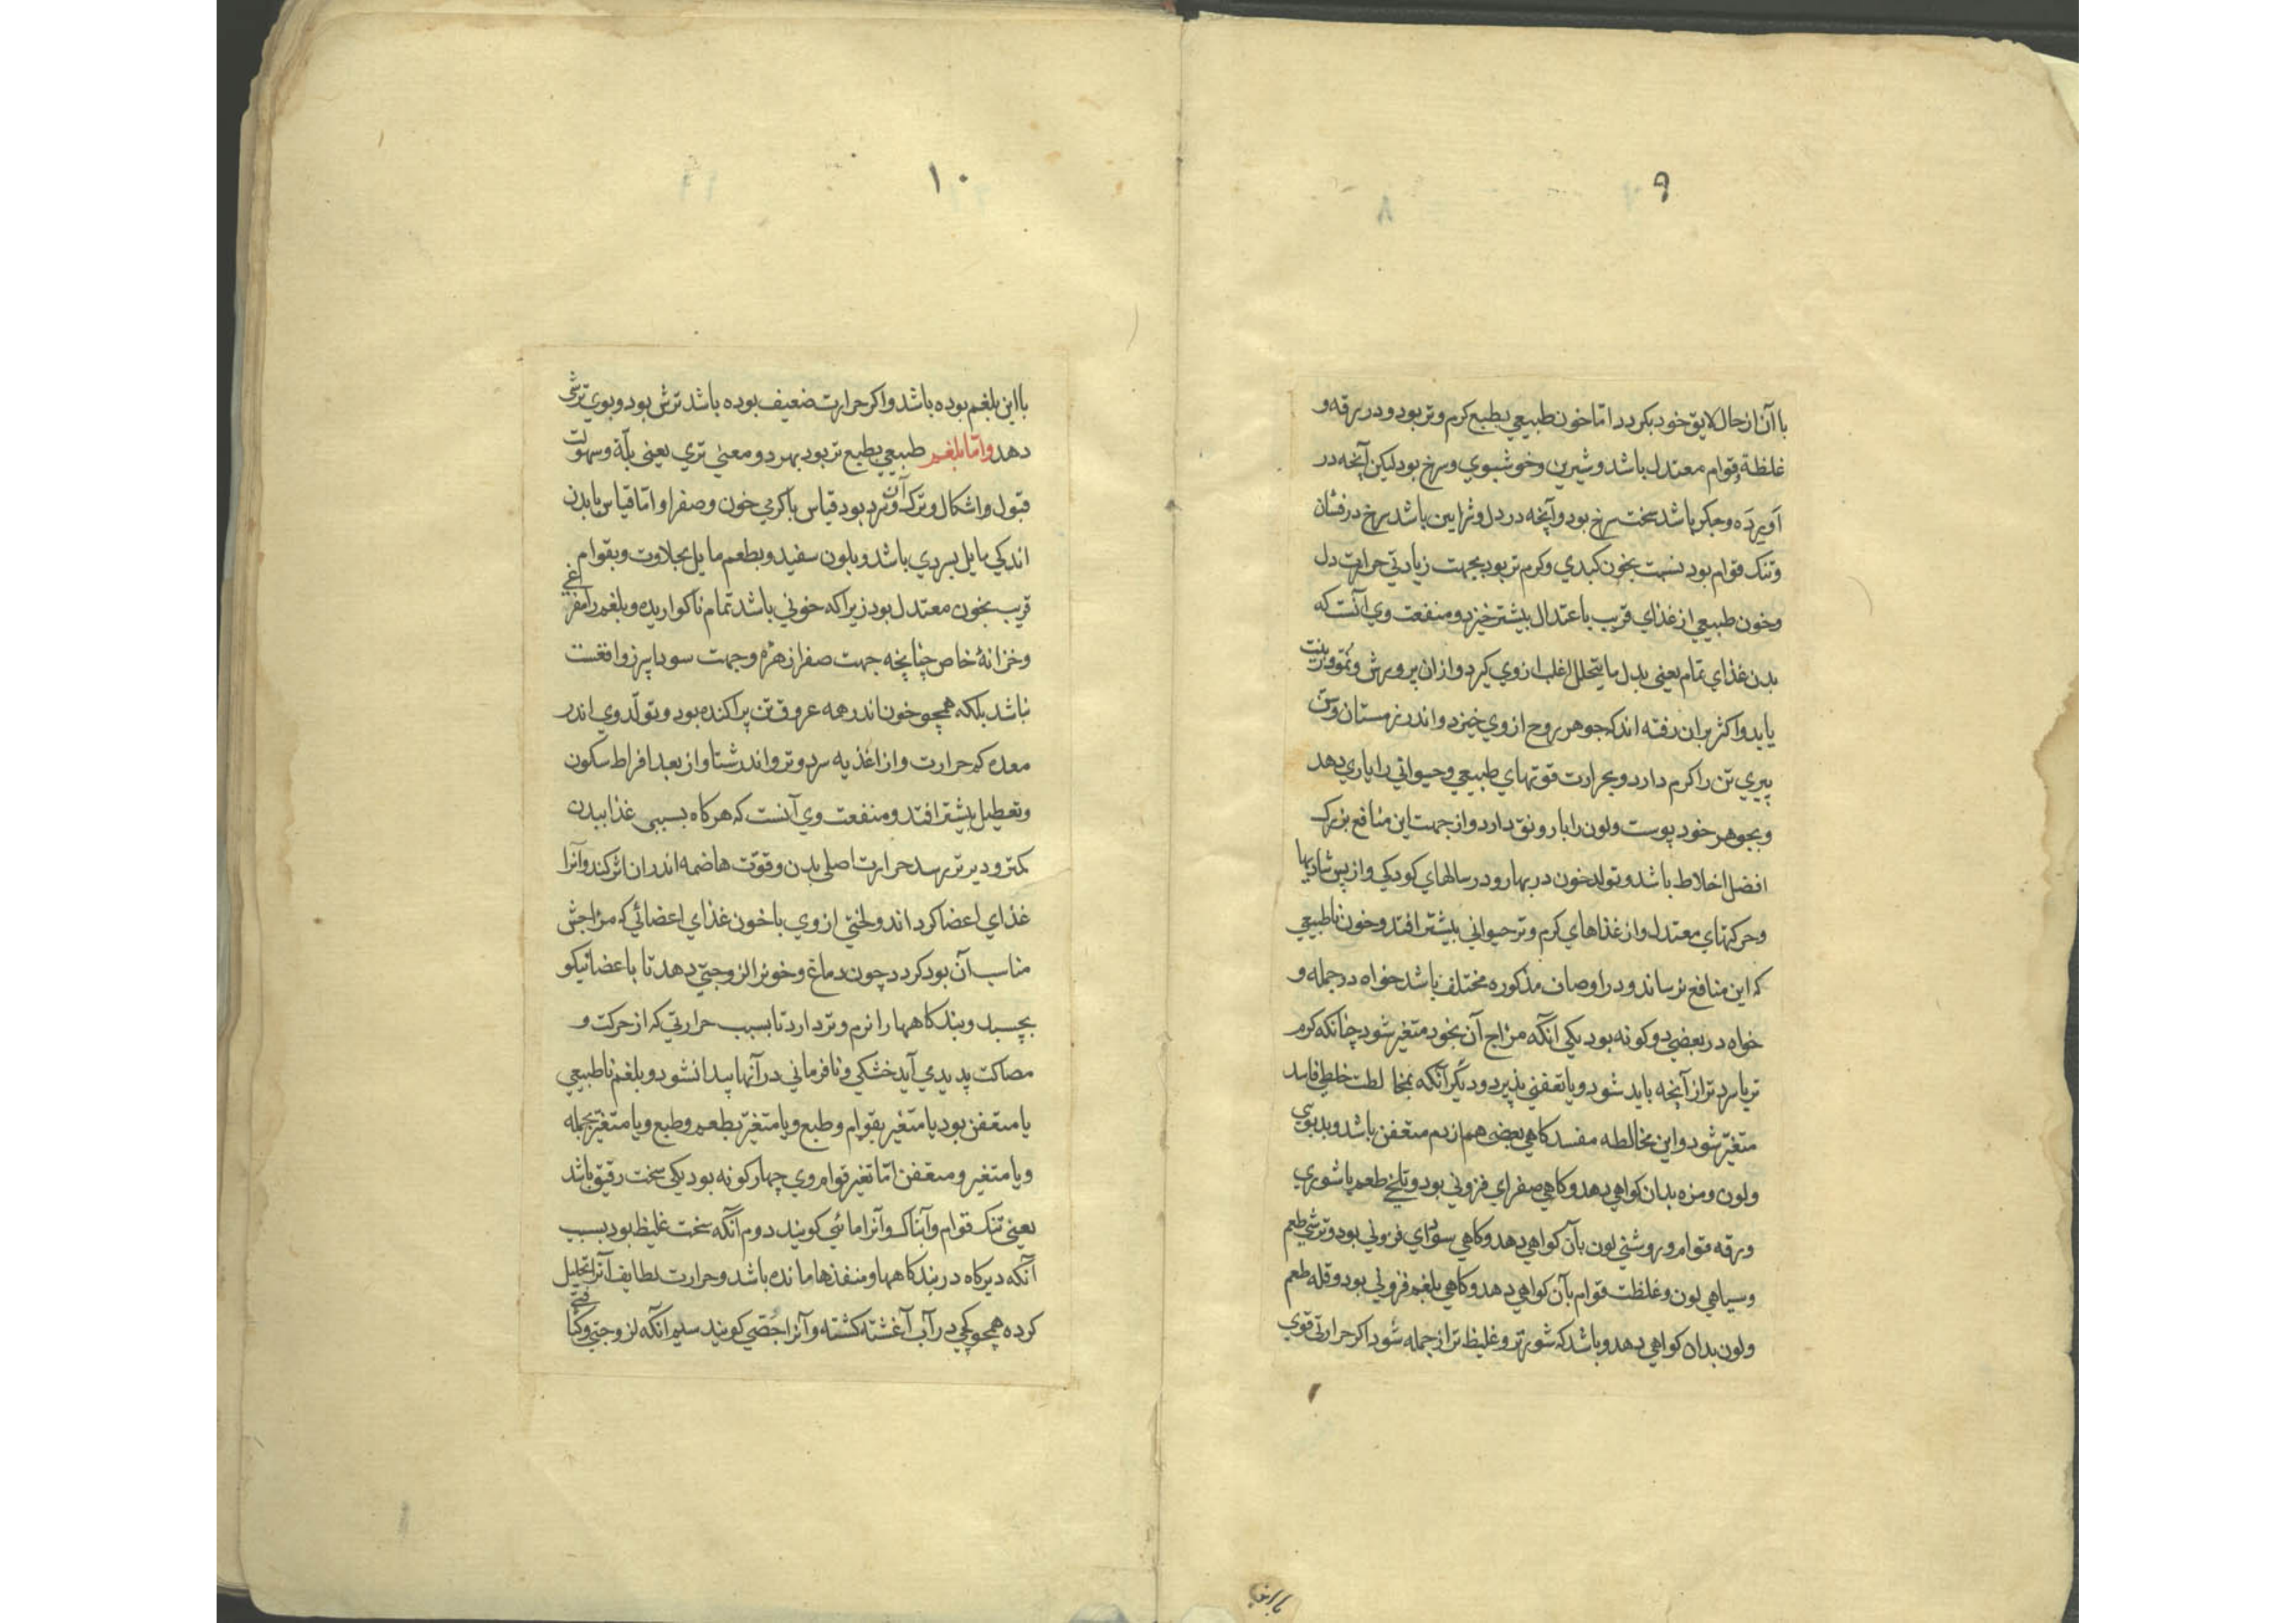 ۹
با آن از حال لایق خود بکردد اما خون طبیعی بطبع کرم و تر بود و در رقه و
غلظة قوام معتدل باشد و شیرین و خوشبوی و سرخ بود لیکن آنچه در
آورده و جکر باشد سخت سرخ بود و آنچه در دل و شرایین باشد سرخ درفشان
و تنک قوام بود نسبت بخون کبدی و کرم تر بود بجهت زیادتی حرارت دل
و خون طبیعی از غذای قریب باعتدال بیشتر خیزد و منفعت وی آنست که
بدن غذای تمام یعنی بدل ما یتحلل اغلب از وی کیرد و ازان پرورش و نمو و زینت
یابد و اکثر بران رفته اند که جوهر روح از وی خیزد و اندر زمستان و سن
پیری تن را کرم دارد و بحرارت قوتهای طبیعی و حیوانی را یاری دهد
و بجوهر خود پوست و لون را با رونق دارد و از جهت این منافع بزرک
افضل اخلاط باشد و تولد خون در بهار و در سالهای کودکی و از پس شادیها
و حرکتهای معتدل و از غذاهای کرم و تر حیوانی بیشتر افتد و خون ناطبیعی
که این منافع نرساند و در اوصاف مذکوره مختلف باشد خواه در جمله و
خواه در بعضی دو کونه بود یکی آنکه مزاج آن بخود متغیر شود چنانکه کرم
تر یا سرد تر از آنچه باید شود و یا تعفنی پذیرد و دیگر آنکه بمخالطت خلطی فاسد
متغیر شود و این مخالطه مفسد کاهی بعضی هم از دم متعفن باشد و بدبوی
ولون و مزه بدان کواهی دهد و کاهی صفرای فزونی بود و تلخی طعم یا شوری
و رقه قوام و روشنی لون بآن کواهی دهد و کاهی سودای فزونی بود و ترشی طعم
و سیاهی لون و غلظت قوام بآن کواهی دهد و کاهی بلغم فزونی بود و قله طعم
ولون بدان کواهی دهد و باشد که شورتر و غلیظ تر از جمله شود اکر حرارتی قوی
با این
۱۰
با این بلغم بوده باشد و اکر حرارت ضعیف بوده باشد ترش بود و بوی ترشی
دهد و اما بلغم طبیعی بطبع تر بود بهر دو معنی تری یعنی بلّة و سهولت
قبول و اشکال و ترک آن و سرد بود قیاس با کرمی خون و صفرا و اما قیاس با بدن
اندکی مایل بسردی باشد و بلون سفید و بطعم مایل بحلاوت و بقوام
قریب بخون معتدل بود زیرا که خونی باشد تمام ناکواریده و بلغم را مفرغی
و خزانهٔ خاص چنانچه جهت صفرا زهره و جهت سودا سپرز واقعست
نباشد بلکه همچو خون اندر همه عروق تن پراکنده بود و تولّد وی اندر
معده کم حرارت و از اغذیه سرد و تر و اندر شتا و از بعد افراط سکون
و تعطیل بیشتر افتد و منفعت وی آنست که هرکاه بسببی غذا ببدن
کمتر و دیر تر رسد حرارت اصلی بدن و قوّت هاضمه اندران اثر کند و آنرا
غذای اعضا کرداند و لختی از وی با خون غذای اعضائی که مزاجش
مناسب آن بود کردد چون دماغ و خونرا لزوجتی دهد تا باعضا نیکو
بچسبد و بندکاهها را نرم و تر دارد تا بسبب حرارتی که از حرکت و
مصاکت پدید می آید خشکی و نافرمانی در آنها پیدا نشود و بلغم ناطبیعی
یا متعفن بود یا متغیر بقوام و طبع و یا متغیر بطعم و طبع و یا متغیر بجمله
و یا متغیر و متعفن امّا تغیر قوام وی چهار کونه بود یکی سخت رقیق باشد
یعنی تنک قوام و آبناک و آنرا مائی کویند دوم آنکه سخت غلیظ بود بسبب
آنکه دیرکاه در بندکاهها و منفذها مانده باشد و حرارت لطایف آنرا تحلیل
کرده همچو کچی در آب آغشته کشته و آنرا جصّی کویند سیم آنکه لزوجتی و